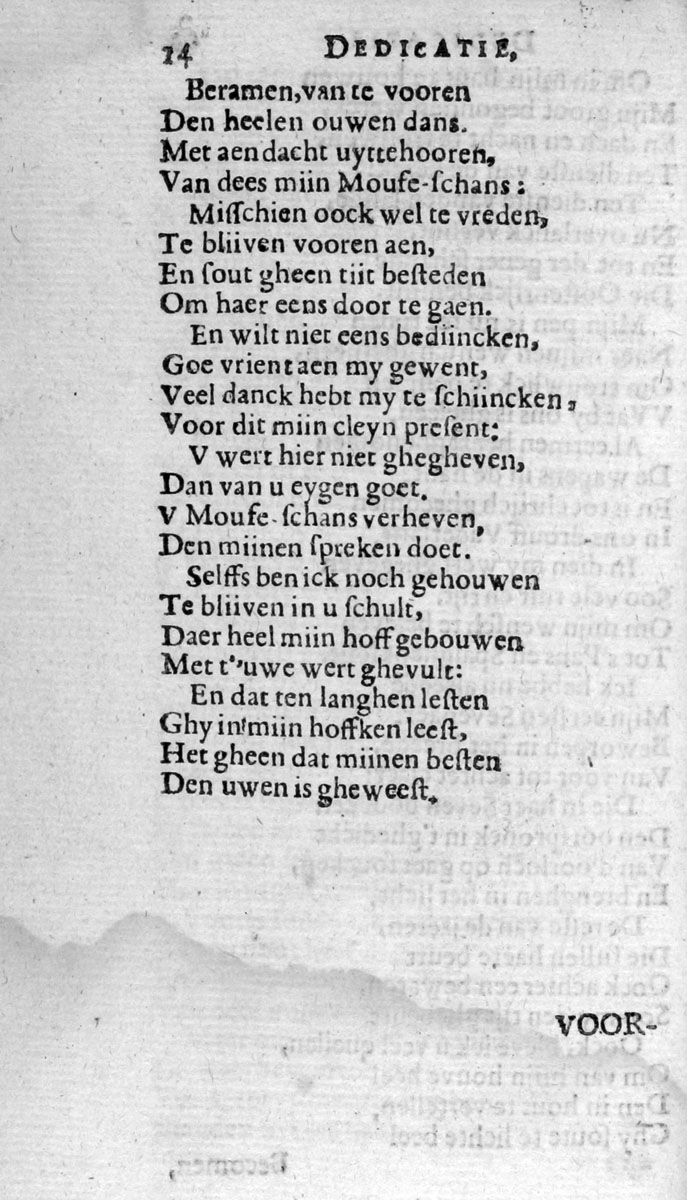 14 DEDICATIE,
Beramen, van te vooren
Den heelen ouwen dans.
Met aendacht uyttehooren,
Van dees miin Mouſe-ſchans:
Miſſchien oock wel te vreden,
Te bliiven vooren aen,
En ſout gheen tiit beſteden
Om haer eens door te gaen.
En wilt niet eens bediincken,
Goe vrient aen my gewent,
Veel danck hebt my te ſchiincken,
Voor dit miin cleyn preſent:
V wert hier niet ghegheven,
Dan van u eygen goet.
V Mouſe-ſchans verheven,
Den miinen ſpreken doet.
Selffs ben ick noch gehouwen
Te bliiven in u ſchult,
Daer heel miin hoff gebouwen
Met t'uwe wert ghevult:
En dat ten langhen leſten
Ghy in miin hoffken leeſt,
Het gheen dat miinen beſten
Den uwen is gheweeſt.
VOOR-